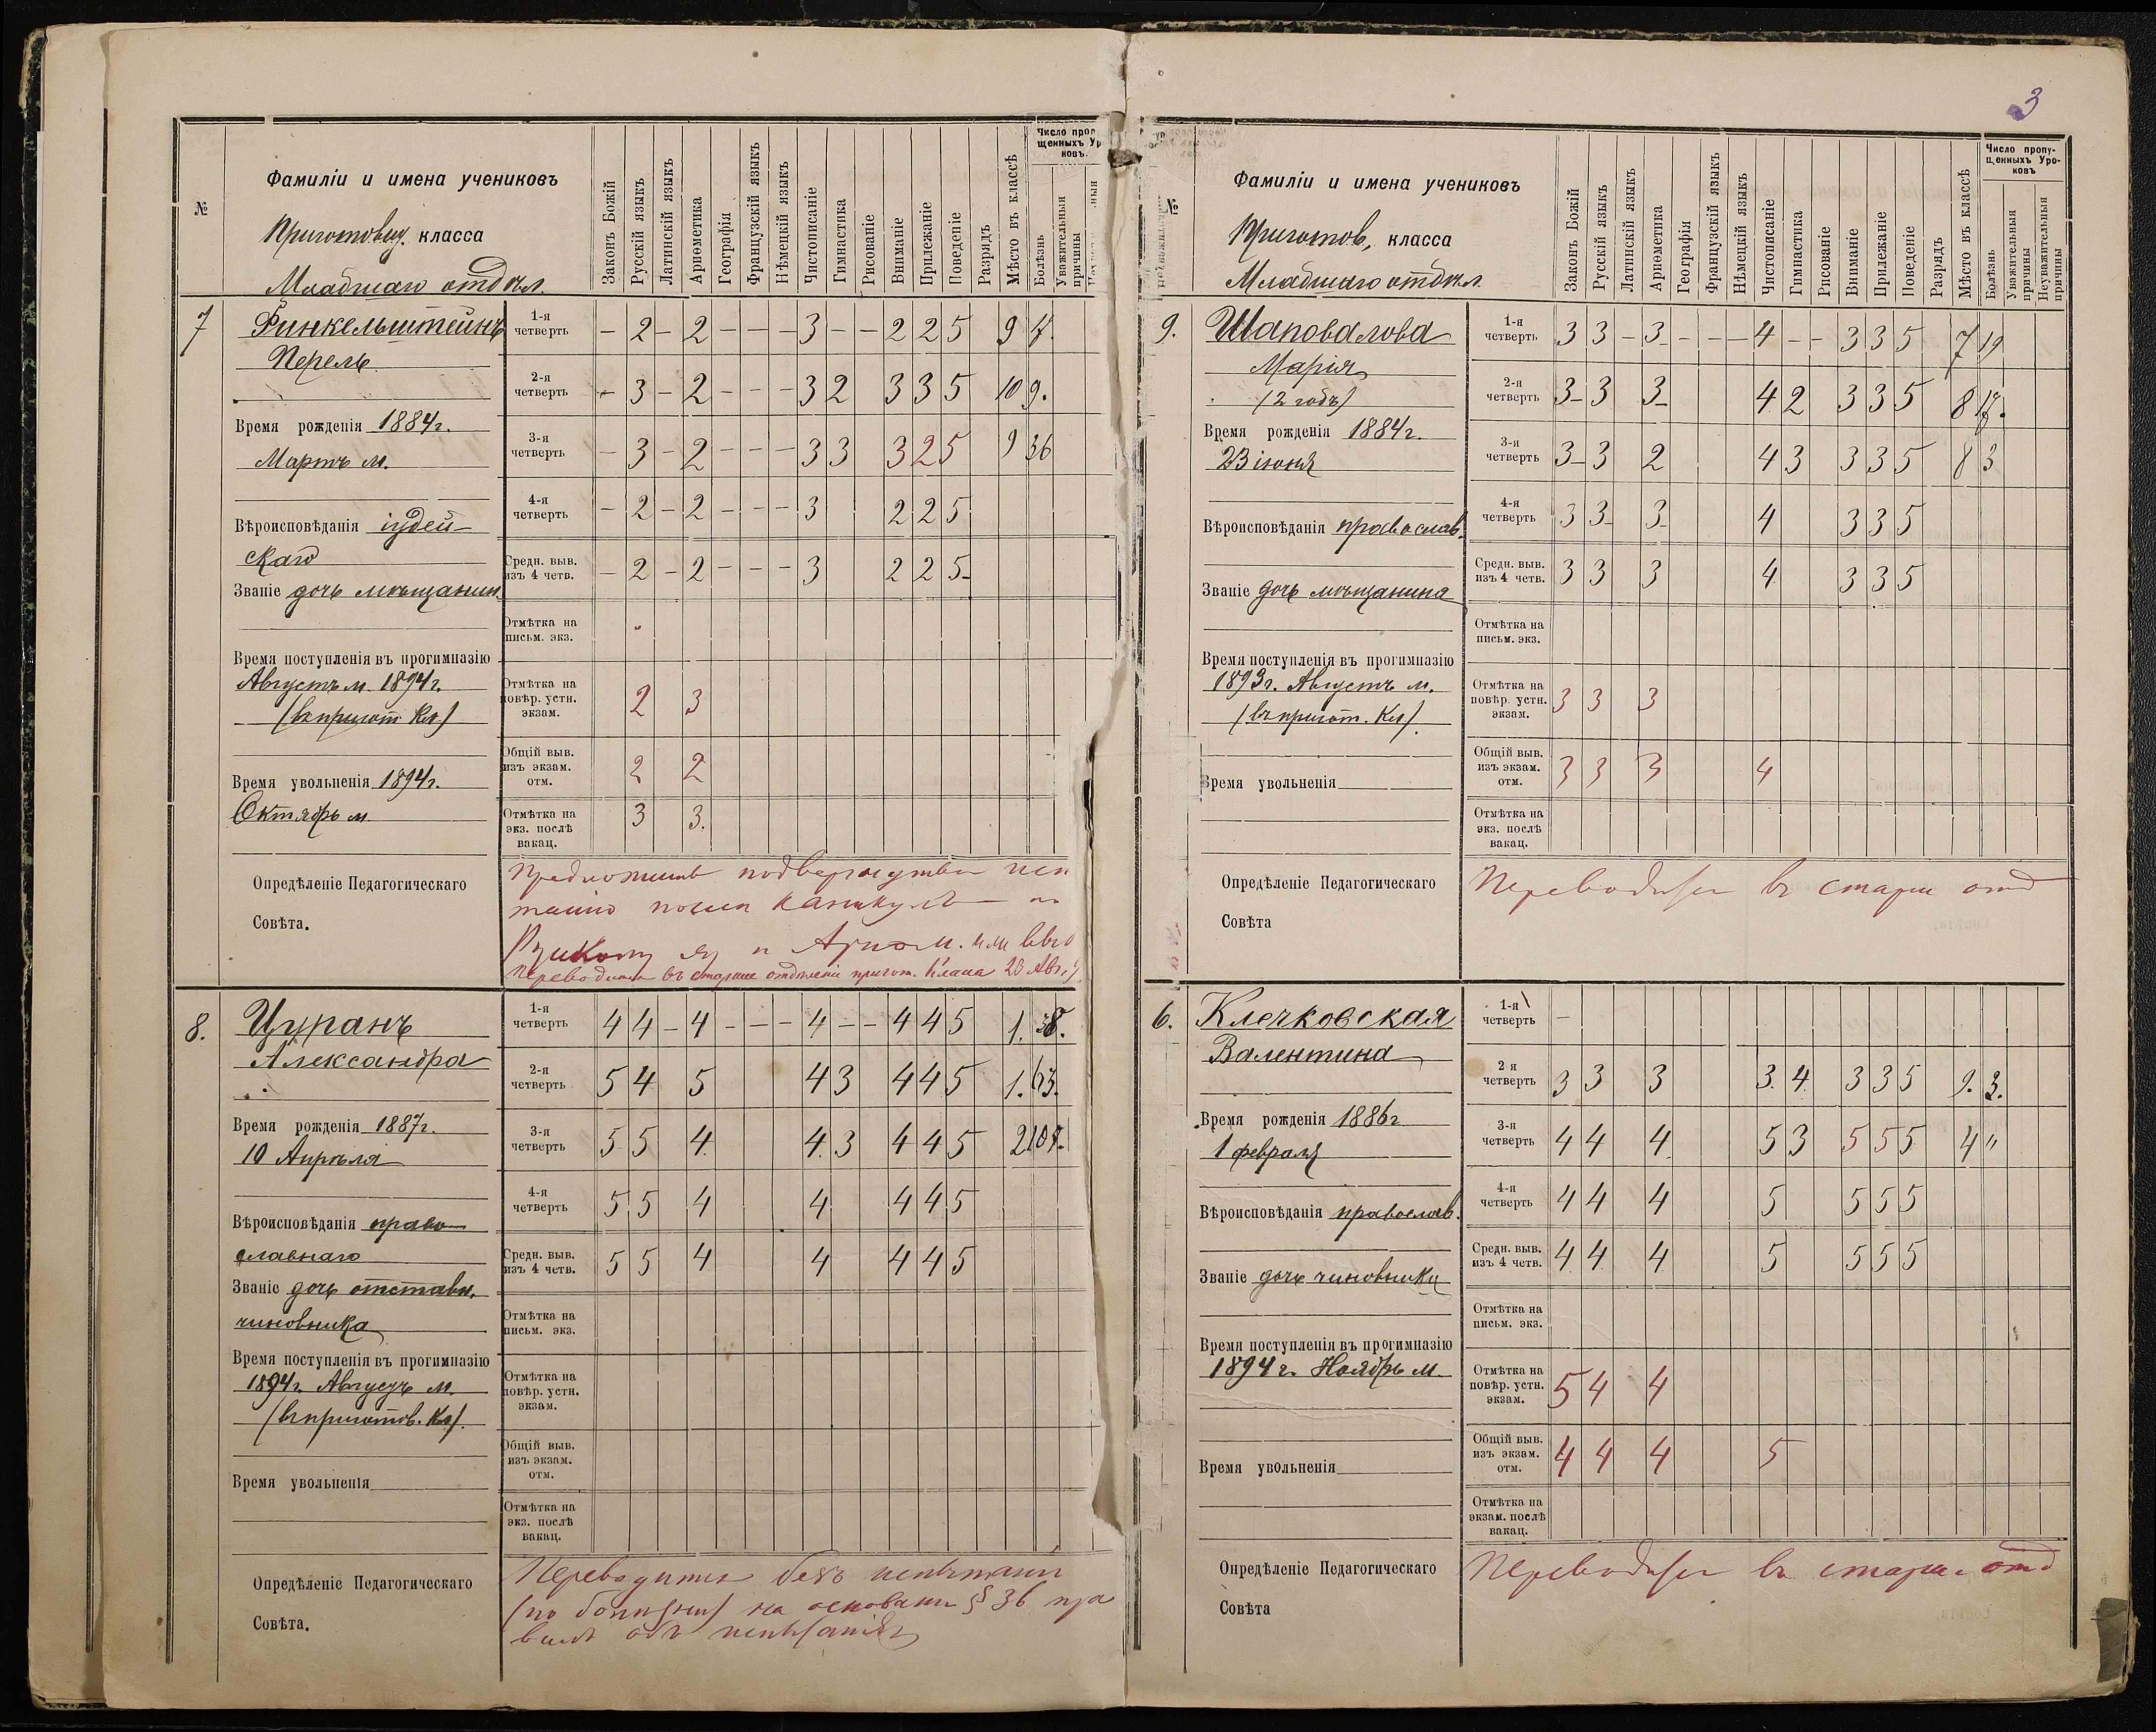 3
№
Фамиліи и имена учениковъ
Приготовит. класса
Младшаго отдѣл.
Законъ Божій
Русскій языкъ
Латинскій языкъ
Ариѳметика
Географія
Французскій языкъ
Нѣмецкій языкъ
Чистописаніе
Гимнастика
Рисованіе
Вниманіе
Прилежаніе
Поведеніе
Разрядъ
Мѣсто въ классѣ
Число проп
щенныхъ Ур
ковъ.
Болѣзнь
Уважительныя
причины
7
Финкельштейнъ
Перель
Время рожденія 1884г.
Мартъ м.
Вѣроисповѣданія іудей-
скаго
Званіе дочь мѣщанин.
Время поступленія въ прогимназію
Августъ м. 1894г.
(въ пригот. кл)
Время увольненія 1894г.
Октябрь м.
1-я четверть – 2 – 2 – – – 3 – – 2 2 5 9
2-я четверть – 3 – 2 – – – 3 2 3 3 5 10 9.
3-я четверть – 3 – 2 – – – 3 3 3 2 5 9 36
4-я четверть – 2 – 2 – – – 3 2 2 5
Средн. выв. изъ 4 четв. – 2 – 2 – – – 3 2 2 5
Отмѣтка на письм. экз.
Отмѣтка на повѣр. устн. экзам. 2 3
Общій выв. изъ экзам. отм. 2 2
Отмѣтка на экз. послѣ вакац. 3 3.
Опредѣленіе Педагогическаго
Совѣта.
Предложить подвергнуться исп
танію послѣ каникулъ по
Русскому яз и Ариѳм. или
Переводится въ старшее отдѣленіе пригот. класса 23 Авг.
8.
Цуранъ
Александра
Время рожденія 1887г.
10 Апрѣля
Вѣроисповѣданія право-
славнаго
Званіе дочь отставн.
чиновника
Время поступленія въ прогимназію
1894г. Августъ м.
(въ приготов. кл).
Время увольненія
1-я четверть 4 4 – 4 – – – 4 – – 4 4 5 1. 38.
2-я четверть 5 4 5 4 3 4 4 5 1. 63.
3-я четверть 5 5 4 4 3 4 4 5 2
4-я четверть 5 5 4 4 4 4 5
Средн. выв. изъ 4 четв. 5 5 4 4 4 4 5
Отмѣтка на письм. экз.
Отмѣтка на повѣр. устн. экзам.
Общій выв. изъ экзам. отм.
Отмѣтка на экз. послѣ вакац.
Опредѣленіе Педагогическаго
Совѣта.
Переводится безъ испытаній
(по болѣзни) на основаніи § 36 пра
вилъ объ испытаніяхъ
№
Фамиліи и имена учениковъ
Приготов. класса
Младшаго отдѣл.
Законъ Божій
Русскій языкъ
Латинскій языкъ
Ариѳметика
Географія
Французскій языкъ
Нѣмецкій языкъ
Чистописаніе
Гимнастика
Рисованіе
Вниманіе
Прилежаніе
Поведеніе
Разрядъ
Мѣсто въ классѣ
Число пропу-
щенныхъ Уро-
ковъ
Болѣзнь
Уважительныя
причины
Неуважительныя
причины
9.
Шаповалова
Марія
(2 годъ)
Время рожденія 1884г.
23 іюня
Вѣроисповѣданія православ.
Званіе дочь мѣщанина
Время поступленія въ прогимназію
1893г. Августъ м.
(въ пригот. кл).
Время увольненія
1-я четверть 3 3 – 3 – – – 4 – – 3 3 5 7 19
2-я четверть 3 3 3 4 2 3 3 5 8
3-я четверть 3 3 2 4 3 3 3 5 8 3
4-я четверть 3 3 3 4 3 3 5
Средн. выв. изъ 4 четв. 3 3 3 4 3 3 5
Отмѣтка на письм. экз.
Отмѣтка на повѣр. устн. экзам. 3 3 3
Общій выв. изъ экзам. отм. 3 3 3 4
Отмѣтка на экз. послѣ вакац.
Опредѣленіе Педагогическаго
Совѣта
Переводится въ старш отд
6.
Клечковская
Валентина
Время рожденія 1886г
1 февраля
Вѣроисповѣданія православ.
Званіе дочь чиновника
Время поступленія въ прогимназію
1894г. Ноябрь м.
Время увольненія
1-я четверть –
2 я четверть 3 3 3 3. 4. 3 3 5 9. 3.
3-я четверть 4 4 4 5 3 5 5 5 4 "
4-я четверть 4 4 4 5 5 5 5
Средн. выв. изъ 4 четв. 4 4 4 5 5 5 5
Отмѣтка на письм. экз.
Отмѣтка на повѣр. устн. экзам. 5 4 4
Общій выв. изъ экзам. отм. 4 4 4 5
Отмѣтка на экзам. послѣ вакац.
Опредѣленіе Педагогическаго
Совѣта
Переводится въ старш. отд